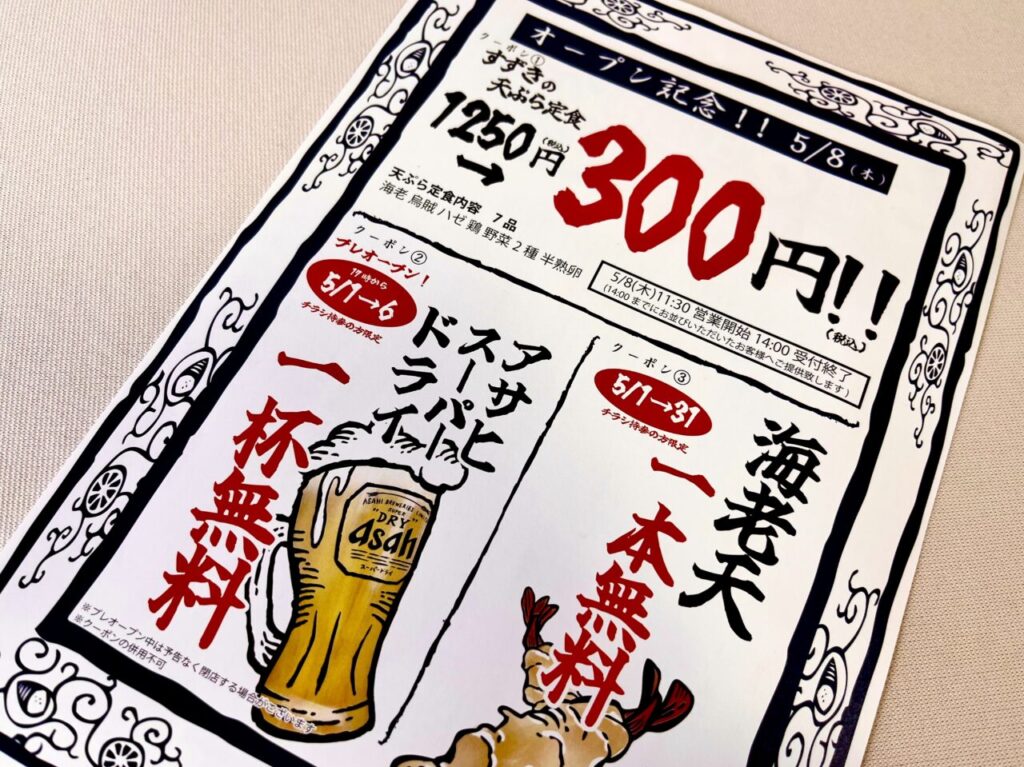 オープン記念!! 5/8(木)
クーポン①
すずきの
天ぷら定食
1250円(税込)
→
300円!!
(税込)
天ぷら定食内容 7品
海老 烏賊 ハゼ 鶏 野菜2種 半熟卵
5/8(木)11:30 営業開始 14:00 受付終了
(14:00までにお並びいただいたお客様へご提供致します)
クーポン②
プレオープン!
17時から
5/1→6
チラシ持参の方限定
アサヒ
スーパー
ドライ
一杯無料
ASAHI BREWERIES
SUPER
DRY
Asahi
スーパードライ
※プレオープン中は予告なく閉店する場合がございます
※クーポンの併用不可
クーポン③
5/1→31
チラシ持参の方限定
海老天
一本無料